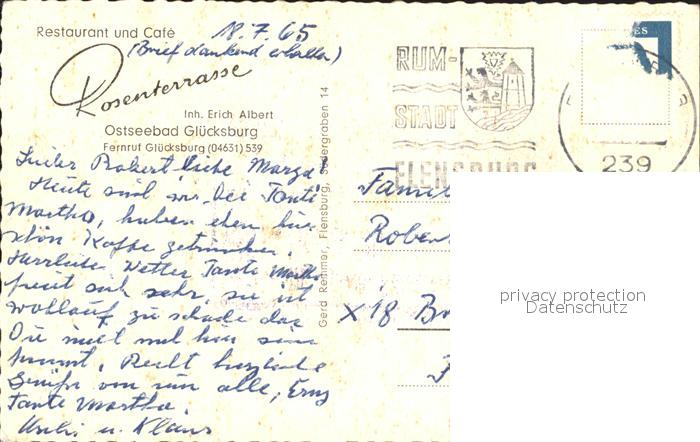 Restaurant und Café
18.7.65
(Brief dankend erhalten)
Rosenterrasse
Inh. Erich Albert
Ostseebad Glücksburg
Fernruf Glücksburg (04631) 539
Lieber Robert liebe Marga
Heute sind wir bei Tante
Martha, haben eben hier
schön Kaffe getrunken.
Herrliches Wetter Tante Martha
freut sich sehr, sie ist
wohlauf zu schade das
Du nicht mal hier sein
kannst. Recht herzliche
Grüße von uns alle,
Tante Martha.
u. Klaus
Gerd Remmer, Flensburg, Südergraben 14
RUM-
STADT
FLENSBURG
239
Famil
Rober
X 18 Br
privacy protection
Datenschutz